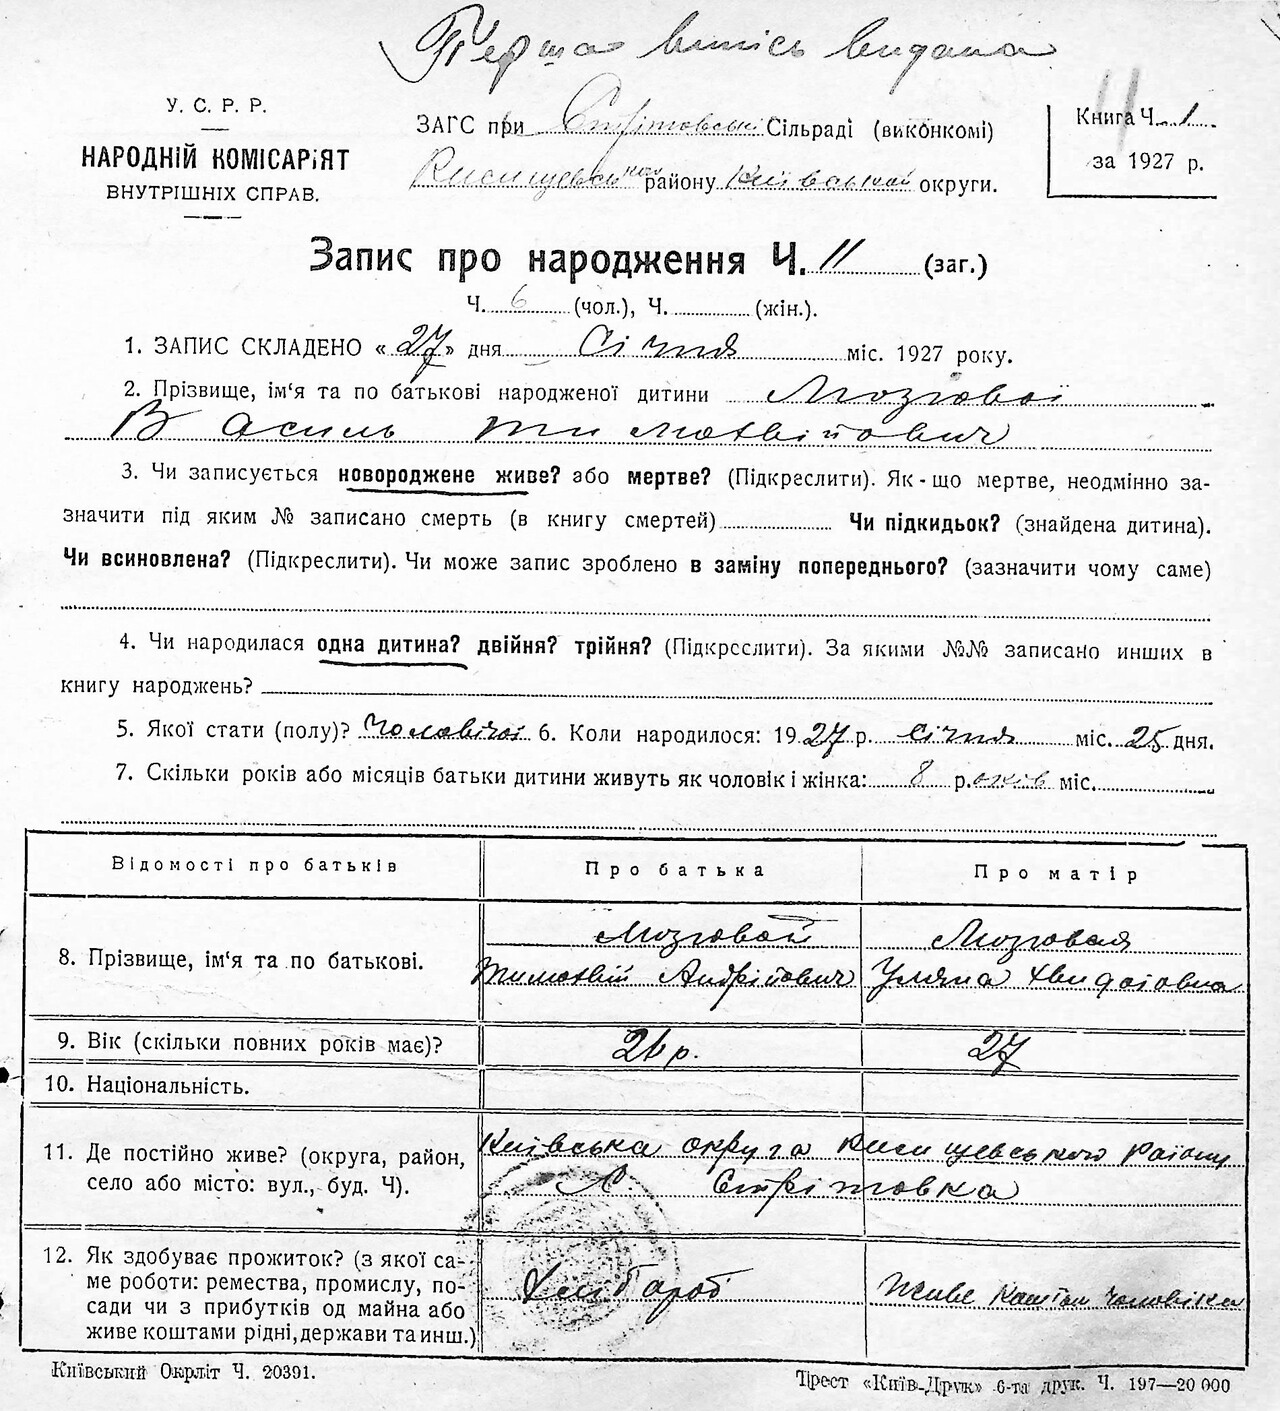 Перша випись видана
У. С. Р. Р.
НАРОДНІЙ КОМІСАРІЯТ
ВНУТРІШНІХ СПРАВ.
ЗАГС при Стрітовські Сільраді (виконкомі)
Кисищевського району Київської округи.
Книга Ч. 1
за 1927 р.
11
Запис про народження Ч. 11 (заг.)
Ч. 6 (чол.), Ч. (жін.).
1. ЗАПИС СКЛАДЕНО « 27 » дня Січня міс. 1927 року.
2. Прізвище, ім‘я та по батькові народженої дитини Мозговой
Василь Тимотвійович
3. Чи записується новороджене живе? або мертве? (Підкреслити). Як-що мертве, неодмінно за-
значити під яким № записано смерть (в книгу смертей) Чи підкидьок? (знайдена дитина).
Чи всиновлена? (Підкреслити). Чи може запис зроблено в заміну попереднього? (зазначити чому саме)
4. Чи народилася одна дитина? двійня? трійня? (Підкреслити). За якими №№ записано инших в
книгу народжень?
5. Якої стати (полу)? Чоловічої 6. Коли народилося: 1927 р. січня міс. 25 дня.
7. Скільки років або місяців батьки дитини живуть як чоловік і жінка: 8 років міс.
Відомості про батьків Про батька Про матір
8. Прізвище, ім‘я та по батькові. Мозговой Мозговая
Тимотвій Андрійович Уляна
9. Вік (скільки повних років має)? 26 р. 27
10. Національність.
11. Де постійно живе? (округа, район, Київська округа Кисищевського Району
село або місто: вул., буд. Ч). с. Стрітовка
12. Як здобуває прожиток? (з якої са-
ме роботи: ремества, промислу, по- Хлібороб Живе кошти чоловіка
сади чи з прибутків од майна або
живе коштами рідні, держави та инш.)
Київський Окрліт Ч. 20391.
Трест «Київ-Друк» 6-та друк. Ч. 197—20 000